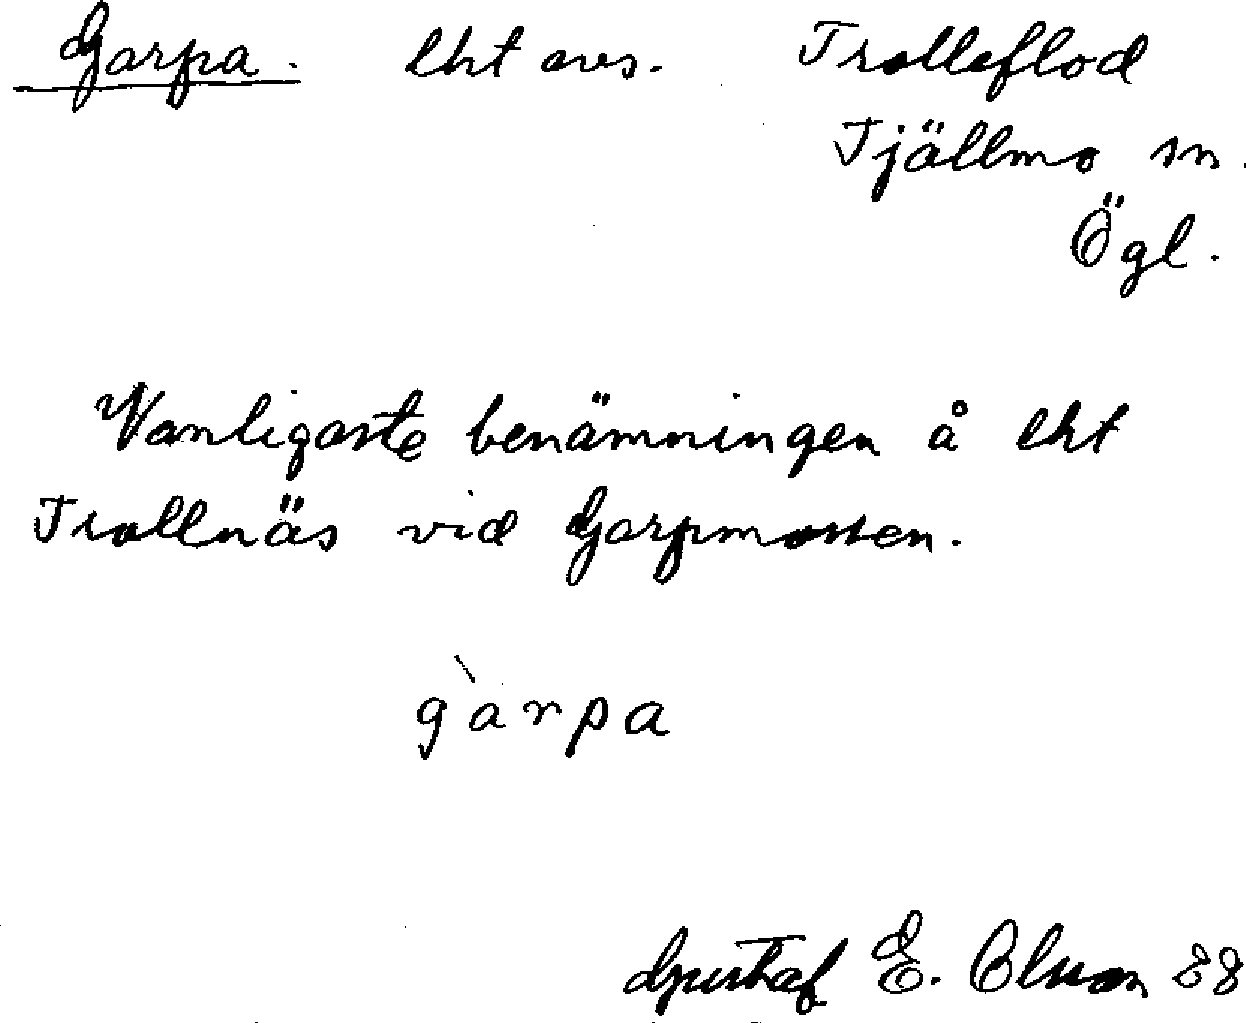 Garpa. lht avs. Trolleflod
Tjällmo sn.
Ögl.
Vanligaste benämningen å lht
Trollnäs vid Garpmossen.
g̀arpa
Gustaf E. Olsson 28